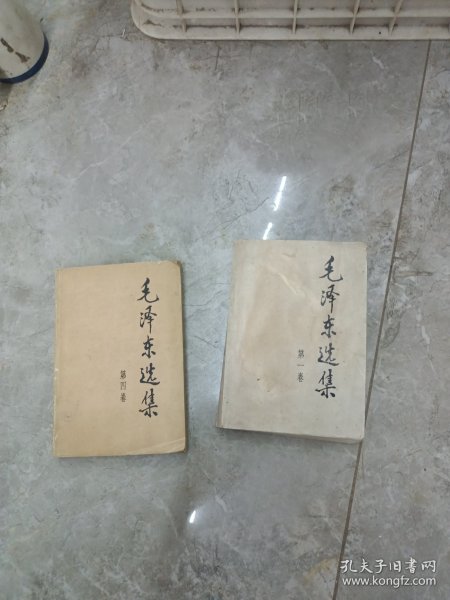 毛泽东选集
第四卷
毛泽东选集
第一卷
孔夫子旧书网
www.kongfz.com